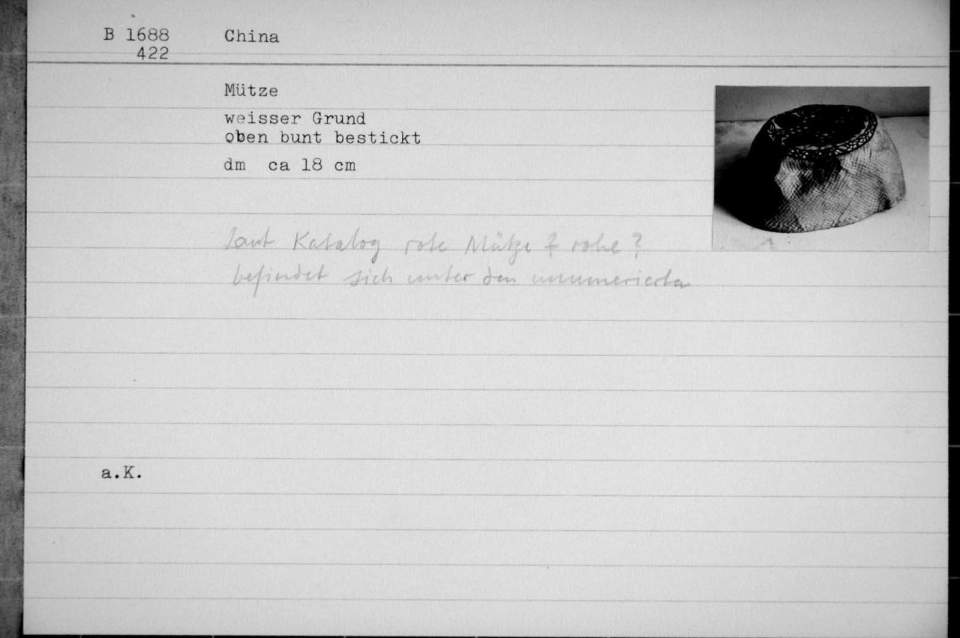 B 1688 China
422
Mütze
weisser Grund
oben bunt bestickt
dm ca 18 cm
laut Katalog rote Mütze
befindet sich unter den unnumerierten
a.K.